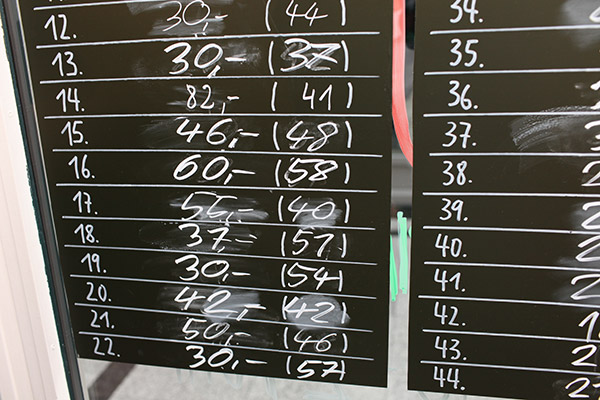 12. 30,- (44)
13. 30,- (37)
14. 82,- (41)
15. 46,- (48)
16. 60,- (58)
17. 55,- (40)
18. 37,- (57)
19. 30,- (54)
20. 42,- (42)
21. 50,- (46)
22. 30,- (57)
34.
35.
36.
37.
38.
39.
40.
41.
42.
43.
44.